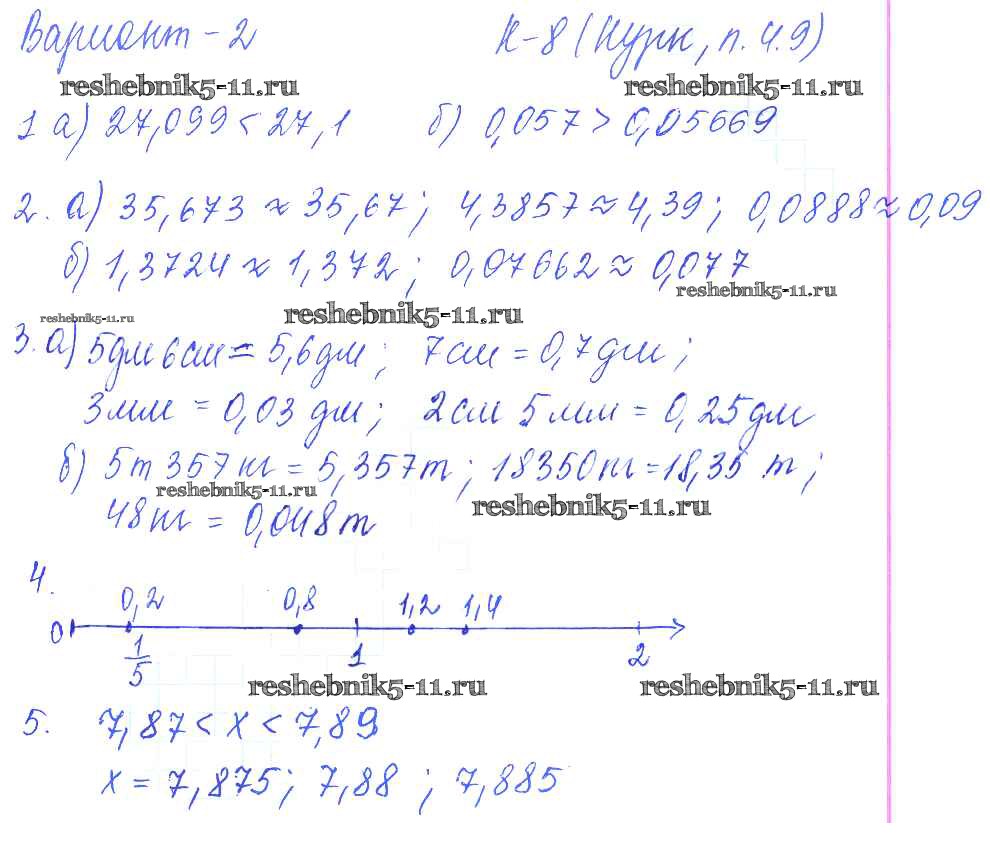 Вариант - 2 К-8 (Нурк, п. 4.9)
reshebnik5-11.ru reshebnik5-11.ru
1 а) 27,099 < 27,1 б) 0,057 > 0,05669
2. а) 35,673 ≈ 35,67; 4,3857 ≈ 4,39; 0,0888 ≈ 0,09
б) 1,3724 ≈ 1,372; 0,07662 ≈ 0,077
reshebnik5-11.ru
reshebnik5-11.ru reshebnik5-11.ru
3. а) 5дм 6см = 5,6дм; 7см = 0,7дм;
3мм = 0,03 дм; 2см 5мм = 0,25дм
б) 5т 357кг = 5,357т; 18350кг = 18,35 т;
reshebnik5-11.ru reshebnik5-11.ru
48кг = 0,048т
4.
0,2 0,8 1,2 1,4
0 1/5 1 2
reshebnik5-11.ru reshebnik5-11.ru
5. 7,87 < x < 7,89
x = 7,875; 7,88 ; 7,885